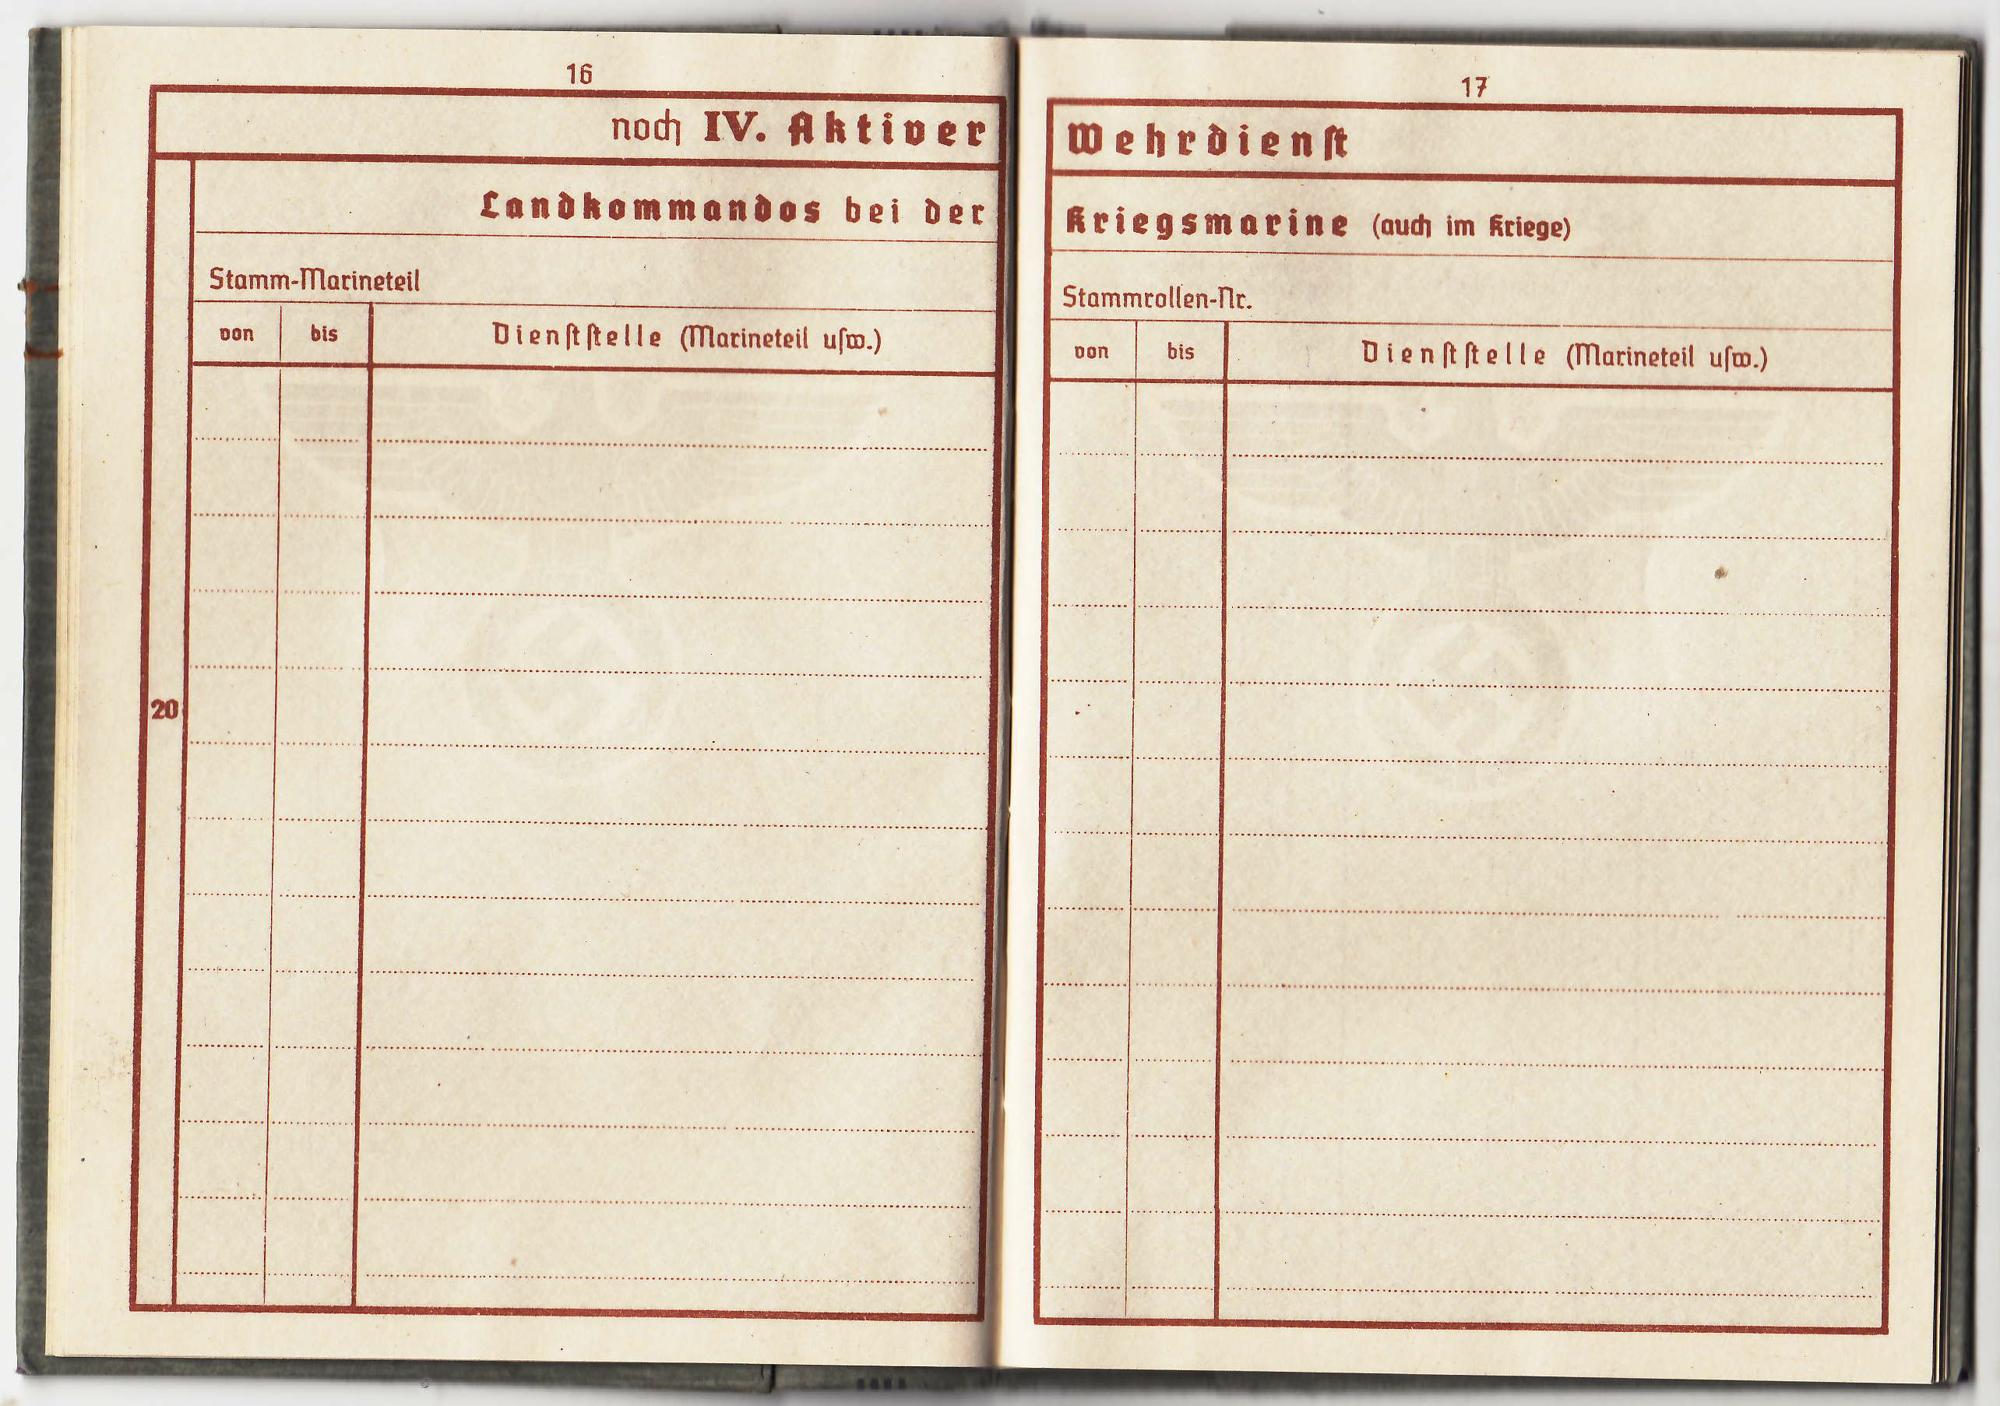 16
noch IV. Aktiver
Landkommandos bei der
Stamm-Marineteil
von bis Dienſtſtelle (Marineteil uſw.)
20
17
Wehrdienſt
Kriegsmarine (auch im Kriege)
Stammrollen-Nr.
von bis Dienſtſtelle (Marineteil uſw.)